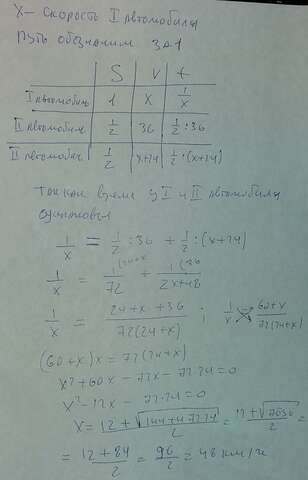 X – скорость I автомобиля
Путь обозначим за 1
S V t
I автомобиль 1 X 1/x
II автомобиль 1/2 36 1/2 : 36
II автомобиль 1/2 x+24 1/2 : (x+24)
Так как время у I и II автомобиля
одинаковы
1/x = 1/2 : 36 + 1/2 : (x+24)
1/x = 1(24+x / 72 + 1(36 / 2x+48
1/x = 24+x+36 / 72(24+x) ; 1/x 60+x / 72(24+x)
(60+x)x = 72(24+x)
x² + 60x - 72x - 72·24 = 0
x² - 12x - 72·24 = 0
X = 12+√144+4·72·24 / 2 = 12+√7056 / 2 =
= 12+84 / 2 = 96 / 2 = 48 км/ч